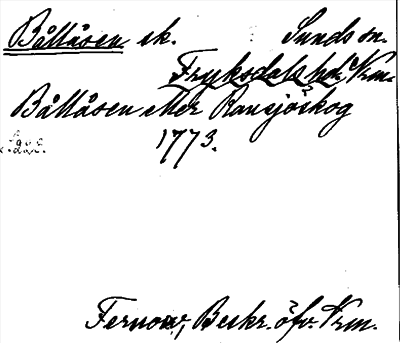 Båttåsen sk. Sunds sn.
Fryksdals hd, Vrm.
Båttåsen eller Ransjöskog
1773.
Fernow, Beskr. öfv. Vrm.